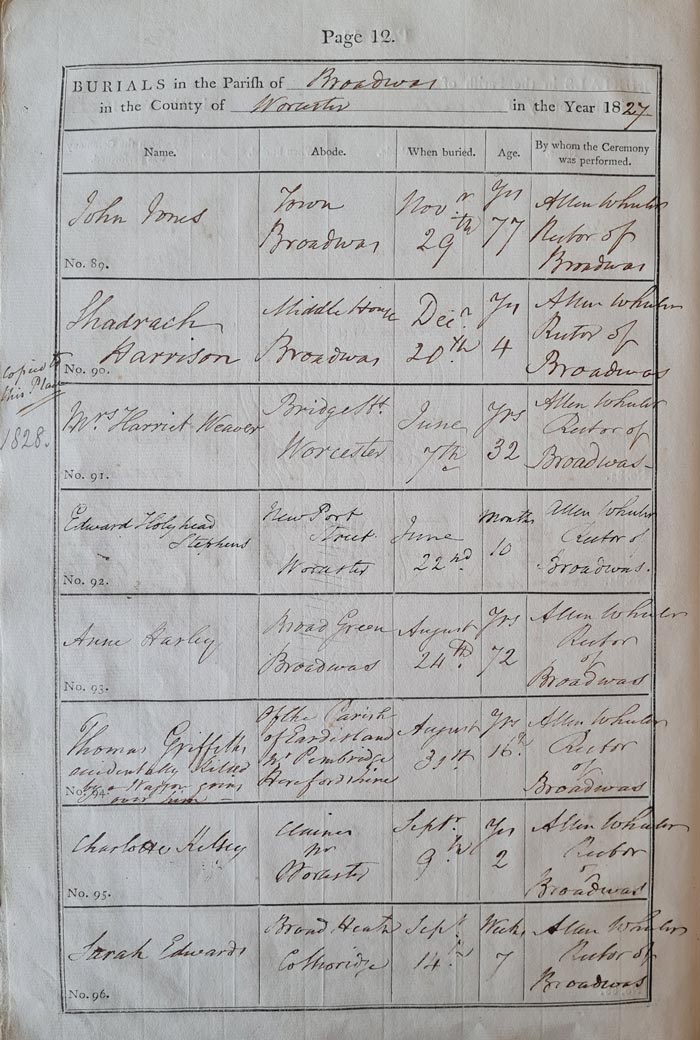 Page 12.
BURIALS in the Parish of Broadwas
in the County of Worcester in the Year 1827
Name. Abode. When buried. Age. By whom the Ceremony was performed.
John Jones
No. 89.
Town
Broadwas
Novr
29th
Yrs
77
Allen Wheeler
Rector of
Broadwas
Shadrach
Harrison
No. 90.
Middle House
Broadwas
Decr
20th
Yrs
4
Allen Wheeler
Rector of
Broadwas
Copied to
this Place
1828.
Mrs Harriet Weaver
No. 91.
Bridge St.
Worcester
June
7th
Yrs
32
Allen Wheeler
Rector of
Broadwas
Edward Holyhead
Stephens
No. 92.
New Port
Street
Worcester
June
22nd
Months
10
Allen Wheeler
Rector of
Broadwas.
Anne Harley
No. 93.
Broad Green
Broadwas
August
24th
Yrs
72
Allen Wheeler
Rector
of
Broadwas
Thomas Griffiths
accidentally killed
by a Waggon going
over him
No. 94.
Of the Parish
of Eardisland
Nr Pembridge
Herefordshire
August
31st
Yrs
16
Allen Wheeler
Rector
of
Broadwas
Charlotte Kelsey
No. 95.
Claines
nr
Worcester
Septr
9th
Yrs
2
Allen Wheeler
Rector
of
Broadwas
Sarah Edwards
No. 96.
Broad Heath
Cotheridge
Sept
14th
Weeks
7
Allen Wheeler
Rector of
Broadwas